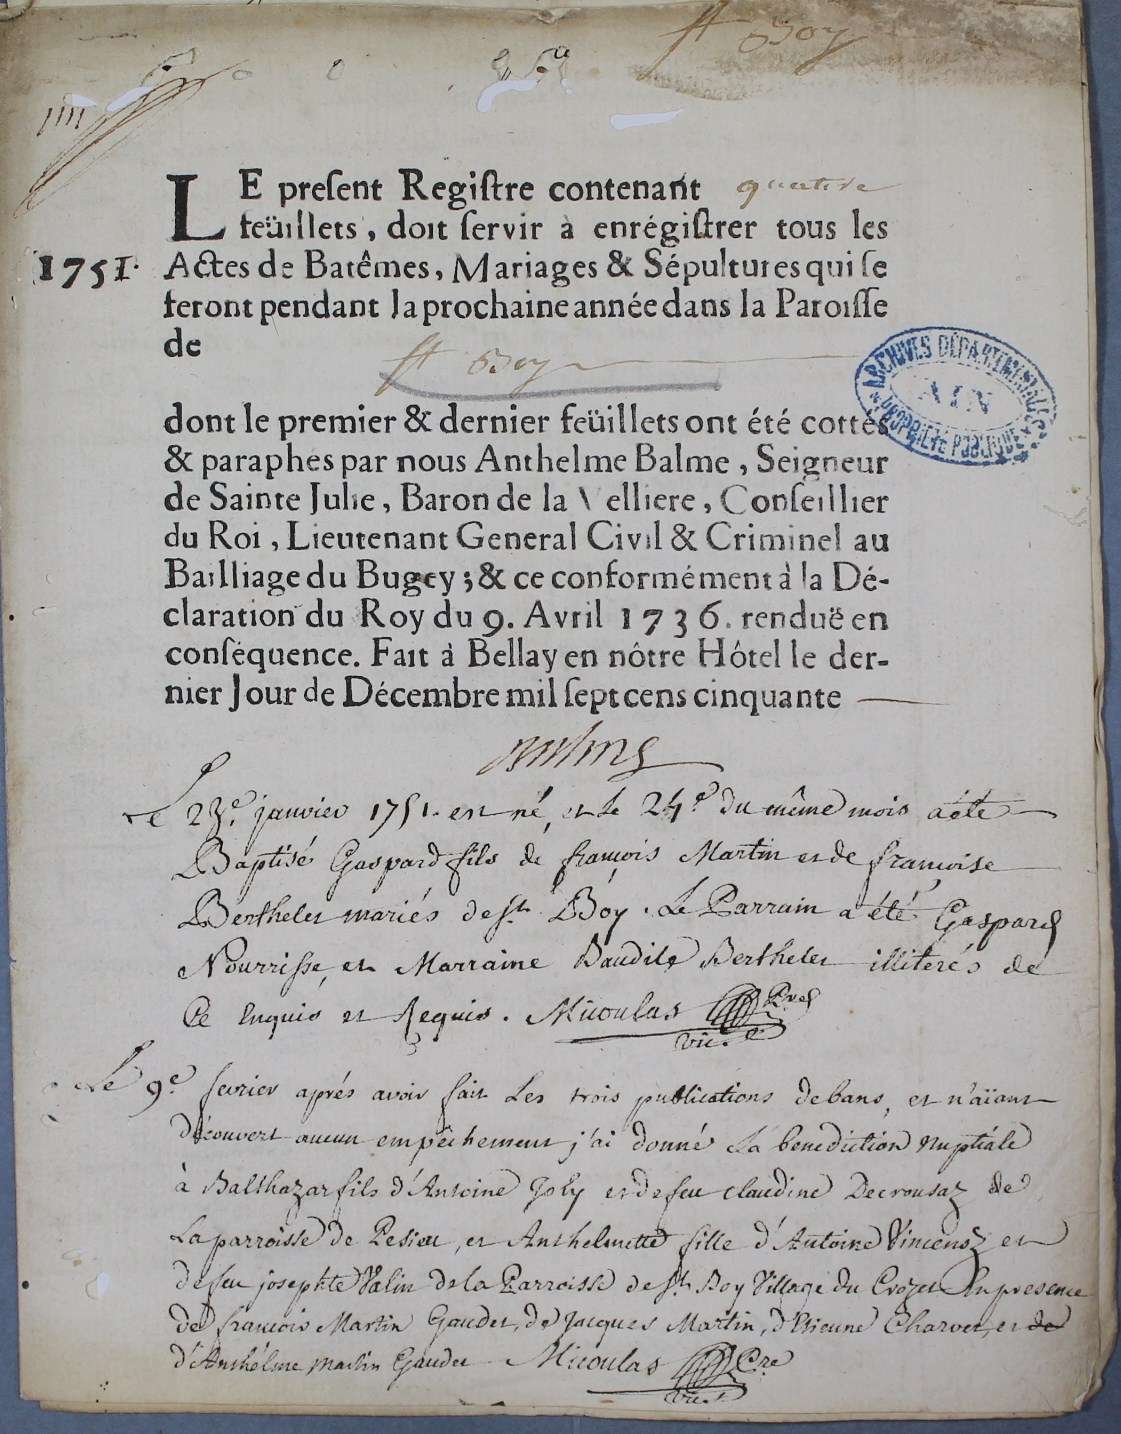 St Boy
LE preſent Regiſtre contenant quatre
feüillets, doit ſervir à enrégiſtrer tous les
1751. Actes de Batêmes, Mariages & Sépultures qui ſe
feront pendant la prochaine année dans la Paroiſſe
de St Boy
ARCHIVES DÉPARTEMENTALES
AIN
PROPRIÉTÉ PUBLIQUE
dont le premier & dernier feüillets ont été cottés
& paraphés par nous Anthelme Balme, Seigneur
de Sainte Julie, Baron de la Velliere, Conſeillier
du Roi, Lieutenant General Civil & Criminel au
Bailliage du Bugey; & ce conformément à la Dé-
claration du Roy du 9. Avril 1736. renduë en
conſéquence. Fait à Bellay en nôtre Hôtel le der-
nier Jour de Décembre mil ſept cens cinquante
Le 23e. janvier 1751. est né, et le 24e du même mois a été
Baptisé Gaspard fils de françois Martin et de françoise
Berthelet mariés de St. Boy. Le Parrain a été Gaspard
Nourrisse, et Marraine Baudile Berthelet illiterés de
Ce Enquis et Requis. Micoulas
vic.e
Le 9e fevrier aprés avoir fait Les trois publications de bans, et n'aïant
découvert aucun empêchement j'ai donné La benediction nuptiale
à Balthazar fils d'Antoine Joly et de feu claudine Decrousaz de
La parroisse de Pesieu, et Anthelmette fille d'Antoine Vincent et
de feu josephte Valin de la Parroisse de St. Boy Village du Crozet En presence
de françois Martin Gaudet, de Jacques Martin, d'Etienne Charvet, et de
d'Anthelme Martin Gaudet Micoulas Pre
vic.